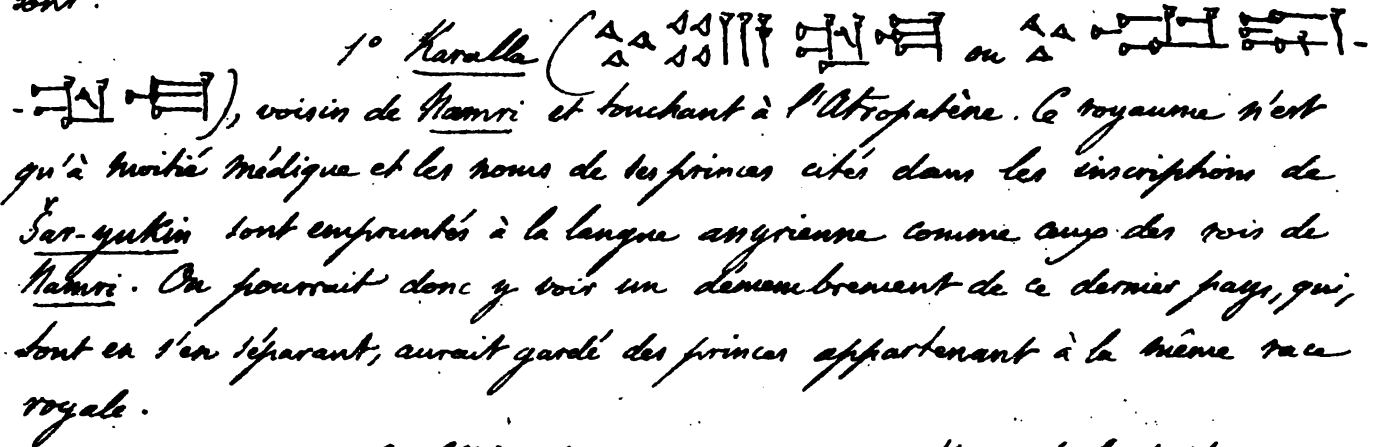 sont :
1° Karalla ( ou
), voisin de Namri et touchant à l'Atropatène. Ce royaume n'est
qu'à moitié médique et les noms de ses princes cités dans les inscriptions de
Šar-yukin sont empruntés à la langue assyrienne comme ceux des rois de
Namri. On pourrait donc y voir un démembrement de ce dernier pays, qui,
tout en s'en séparant, aurait gardé des princes appartenant à la même race
royale.